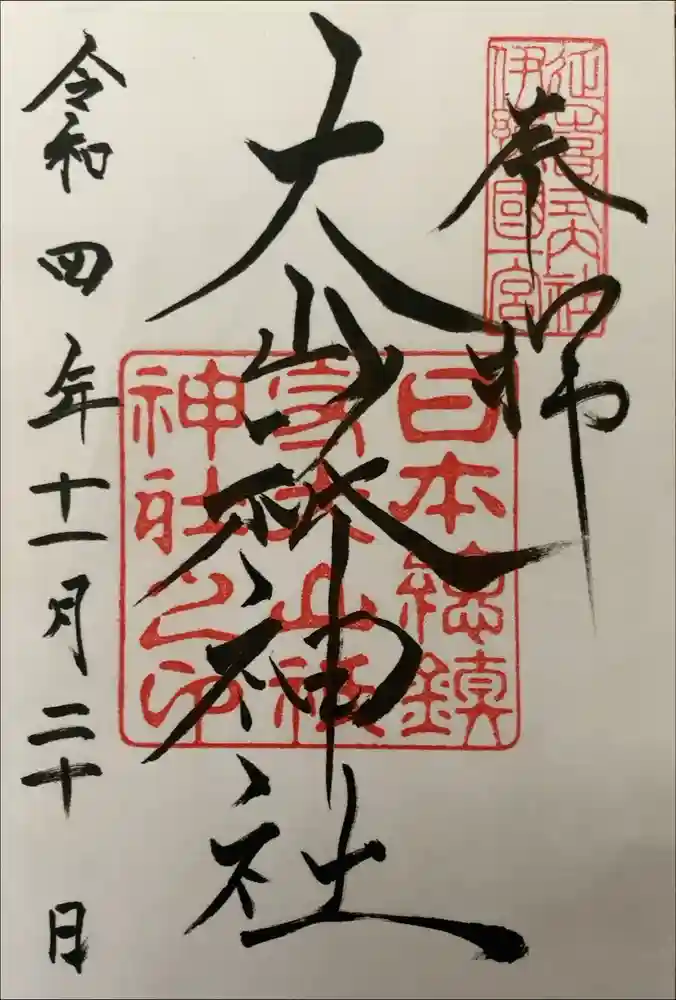 奉拝
延喜式内社
伊豫國一宮
大山祇神社
日本總鎮
守大山祇
神社之印
令和四年十一月二十日